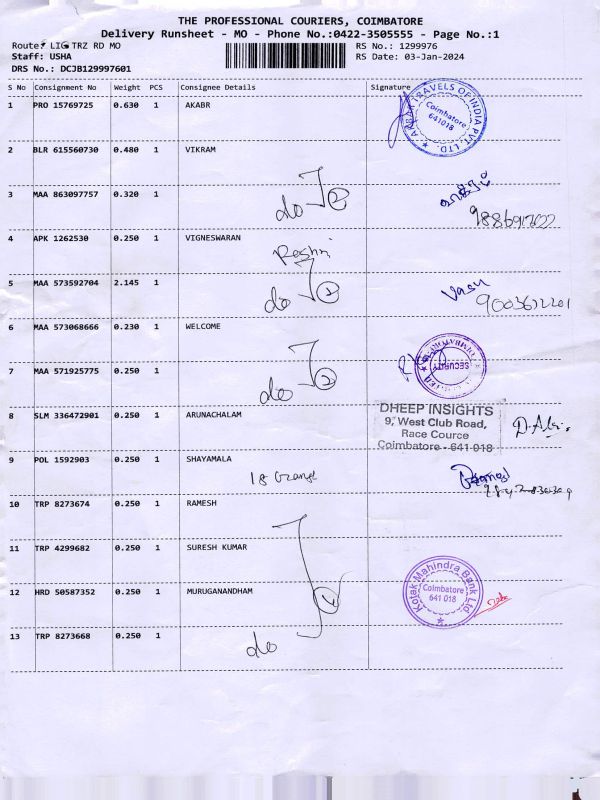 THE PROFESSIONAL COURIERS, COIMBATORE
Delivery Runsheet - MO - Phone No.:0422-3505555 - Page No.:1
Route: LIG TRZ RD MO
RS No.: 1299976
Staff: USHA
RS Date: 03-Jan-2024
DRS No.: DCJB129997601
S No Consignment No Weight PCS Consignee Details Signature
1 PRO 15769725 0.630 1 AKABR
AKBAR TRAVELS OF INDIA PVT. LTD.
Coimbatore
641018
2 BLR 615560730 0.480 1 VIKRAM
3 MAA 863097757 0.320 1
do 2
4 APK 1262530 0.250 1 VIGNESWARAN
5 MAA 573592704 2.145 1
do 2
Vasu
6 MAA 573068666 0.230 1 WELCOME
SECURITY
7 MAA 571925775 0.250 1
do 2
8 SLM 336472901 0.250 1 ARUNACHALAM
DHEEP INSIGHTS
9, West Club Road,
Race Cource
Coimbatore - 641 018
9 POL 1592903 0.250 1 SHAYAMALA
10 TRP 8273674 0.250 1 RAMESH
11 TRP 4299682 0.250 1 SURESH KUMAR
12 HRD 50587352 0.250 1 MURUGANANDHAM
4
Kotak Mahindra Bank Ltd
Coimbatore
641 018
13 TRP 8273668 0.250 1
do